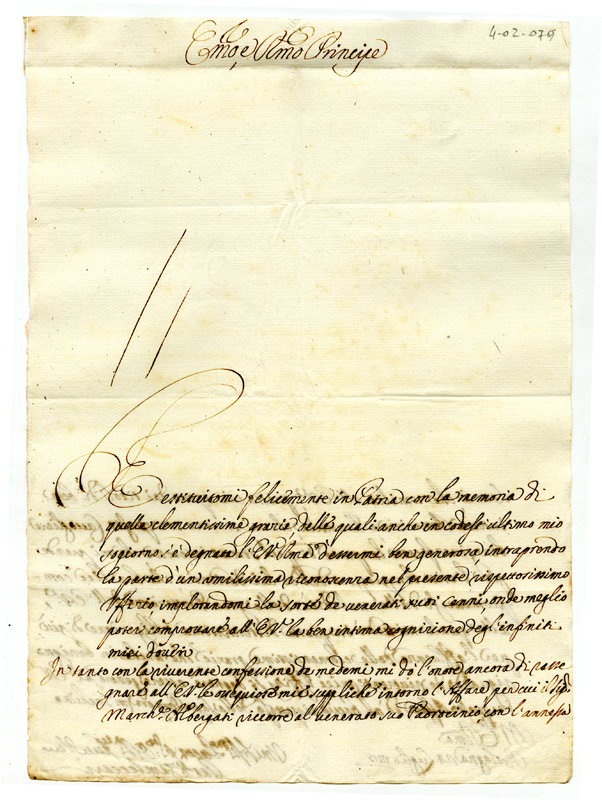 4-02-079
Emo, e Rmo Principe
Restituitomi felicemente in Patria con la memoria di
quelle clementissime grazie, delle quali anche in codest' ultimo mio
sogiorno s'è degnata l'E.V. d'essermi ben generosa, intraprendo
la parte d'un umilissima riconoscenza nel presente rispettosissimo
Offizio implorandomi la sorte de venerati suoi Cenni, onde meglio
poter comprovare all'E.V. la ben intima cognizione degl'infiniti
miei doveri
In tanto con la riverente confessione de medemi mi dò l'onore ancora di rasse
gnare all'E.V. le ossequiose mie suppliche intorno l'Affare per cui il Sig.
March.e Albergati ricorre al venerato suo Padrocinio con l'annessa